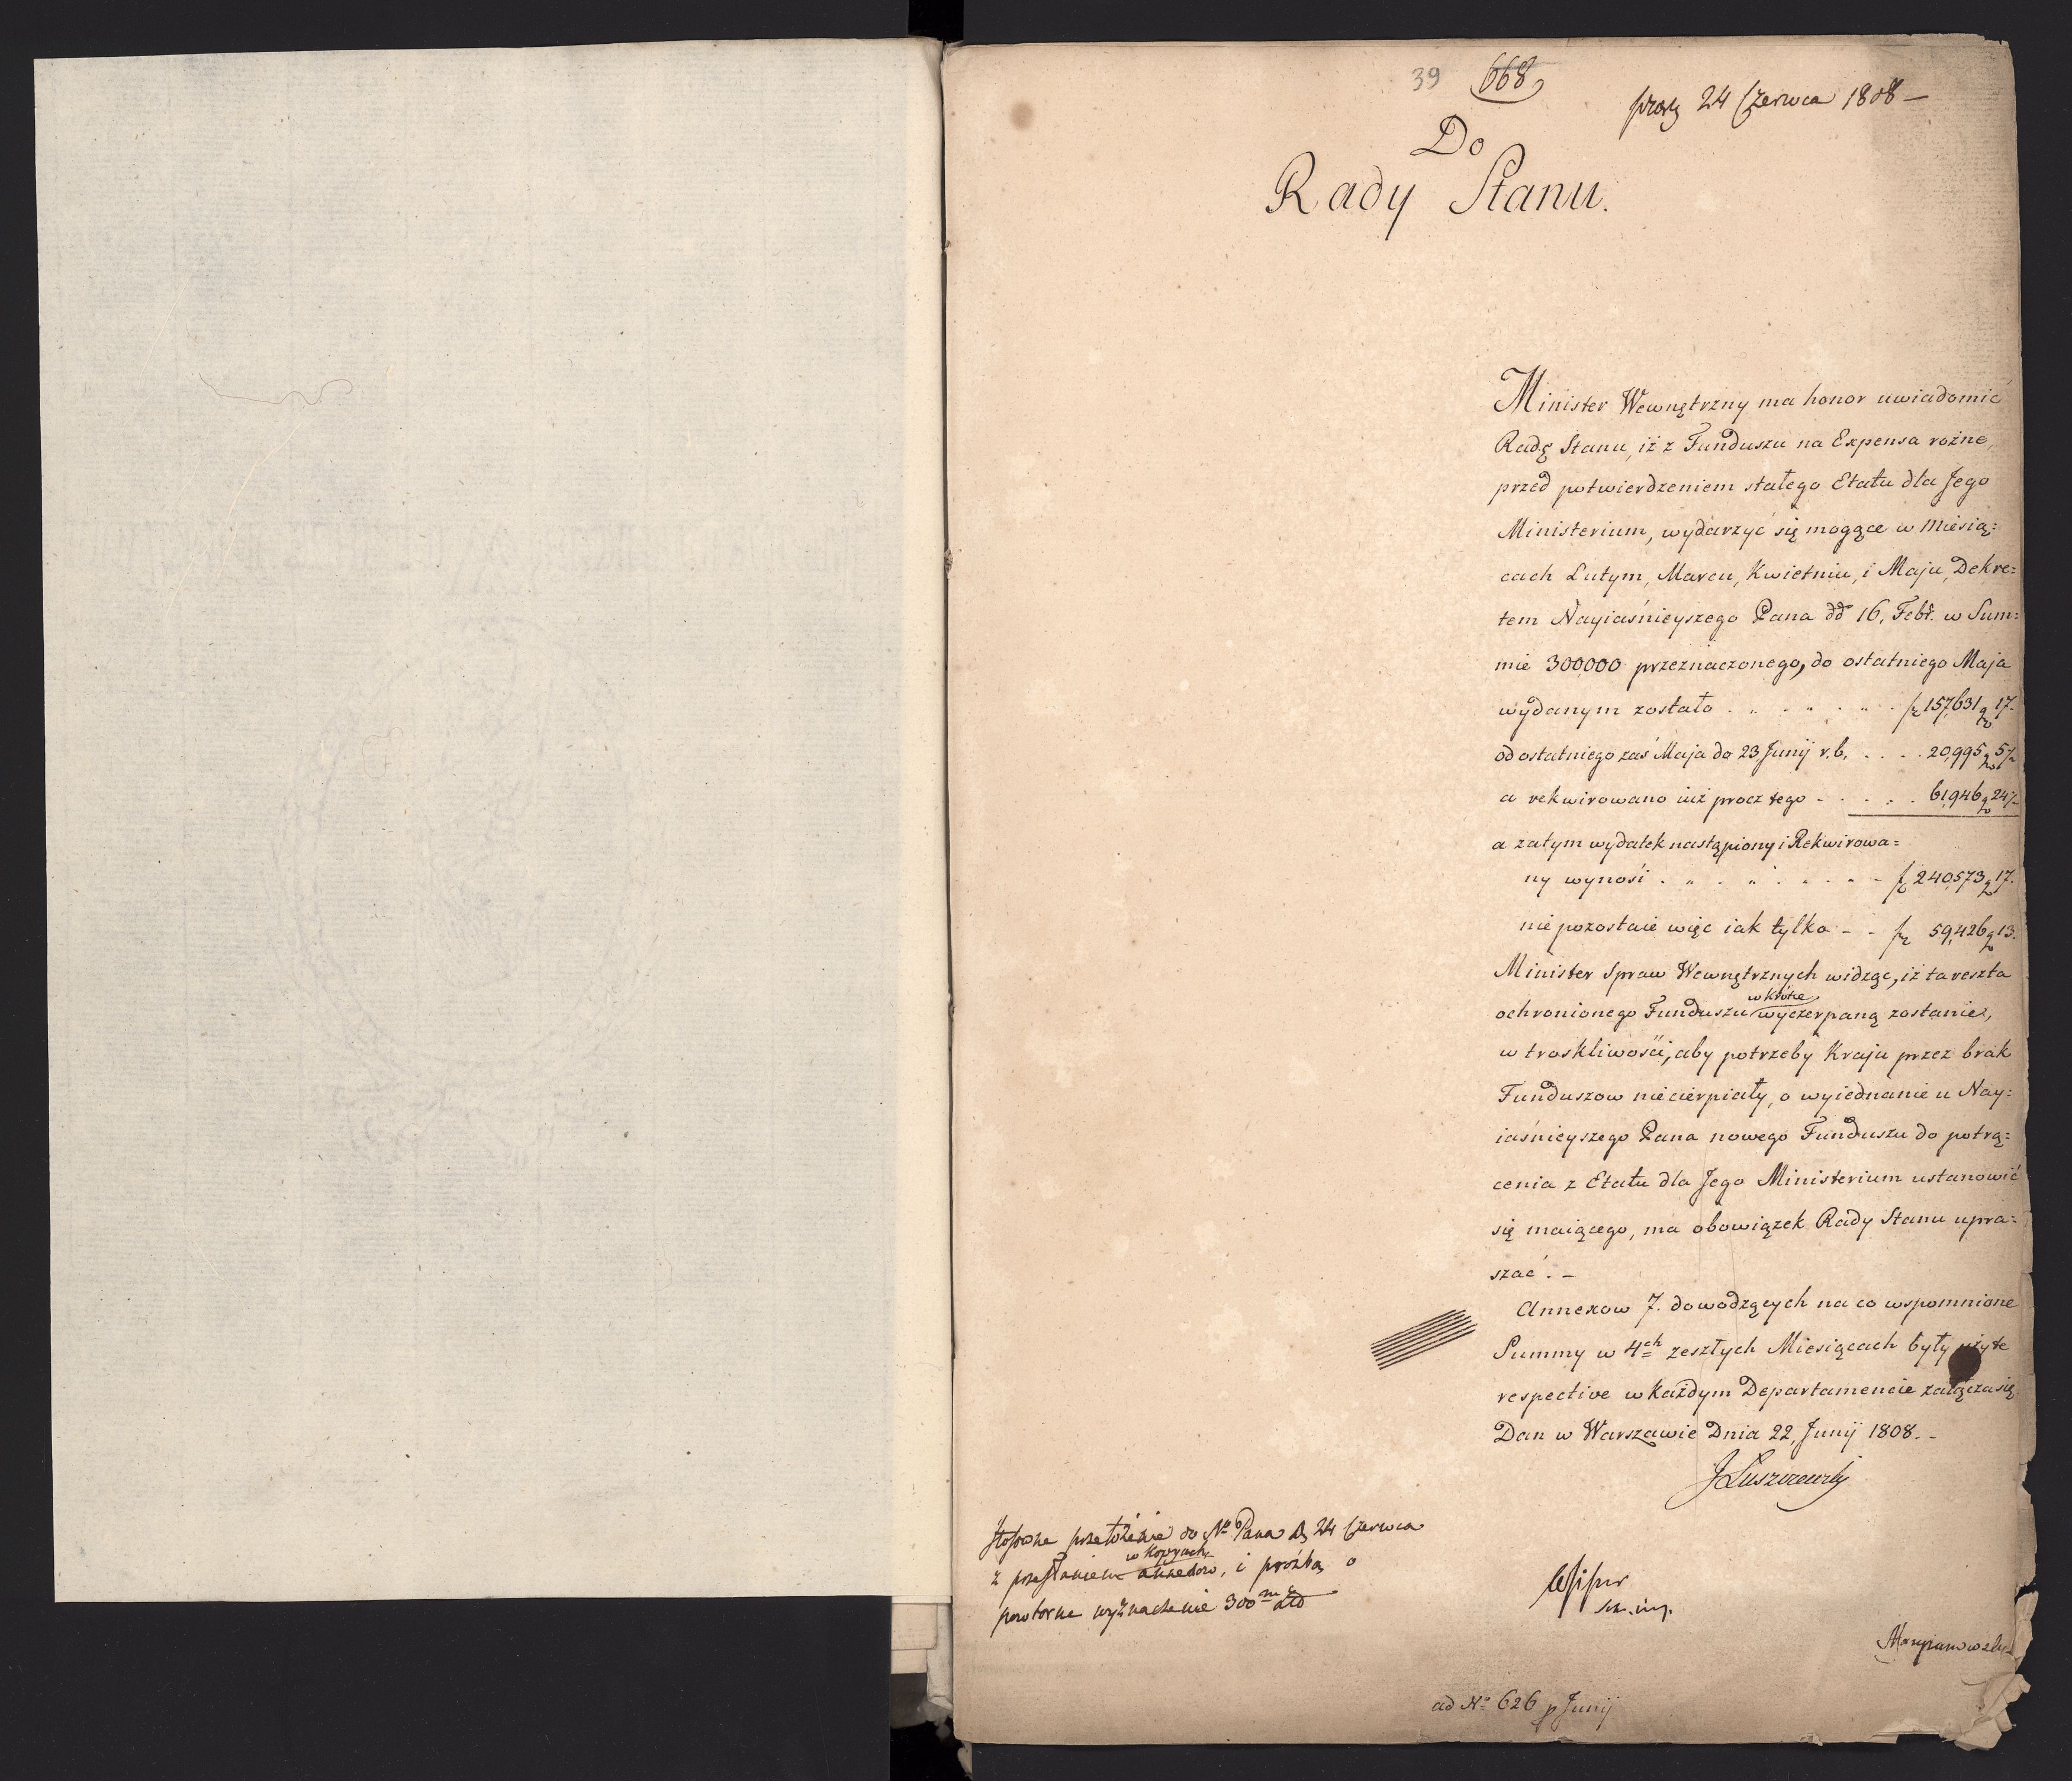 39 668
24 Czerwca 1808 –
Do
Rady Stanu.
Minister Wewnętrzny ma honor uwiadomić
Radę Stanu, iż z Funduszu na Expensa rożne,
przed potwierdzeniem stałego Etatu dla Jego
Ministerium, wydarzyć się mogące w Miesią=
cach Lutym, Marcu, Kwietniu, i Maju, Dekre=
tem Nayiaśnieyszego Pana dd° 16, Febr. w Sum=
mie 300,000 przeznaczonego, do ostatniego Maja
wydanym zostało . . . . . . . 157,631 17.
od ostatniego zaś Maja do 23 Junij r.b. . . . . 20,995 5
a rekwirowano iuż procz tego - . . . . 61,946 24
a zatym wydatek nastąpiony i Rekwirowa=
ny wynośi . . . . . . . - 240,573 17.
nie pozostaie więc iak tylko - - 59,426 13.
Minister Spraw Wewnętrznych widząc, iż ta reszta
w krótce
ochronionego Funduszu wyczerpaną zostanie,
w troskliwości, aby potrzeby Kraju przez brak
Funduszow nie cierpiały, o wyiednanie u Nay=
iaśnieyszego Pana nowego Funduszu do potrą=
cenia z Etatu dla Jego Ministerium ustanowić
się maiącego, ma obowiązek Rady Stanu upra=
szać. –
Annexow 7. dowodzących na co wspomnione
Summy w 4ch zeszłych Miesiącach były użyte
respective w każdym Departamencie załącza się
Dan w Warszawie Dnia 22, Junij 1808. -
JŁuszczewski
Stosowne przełożenie do No Pana 24 Czerwca
w kopyach
z przesłaniem annexow, i prożbą o
powtorne wyznaczenie 300
ad No 626 p Junij